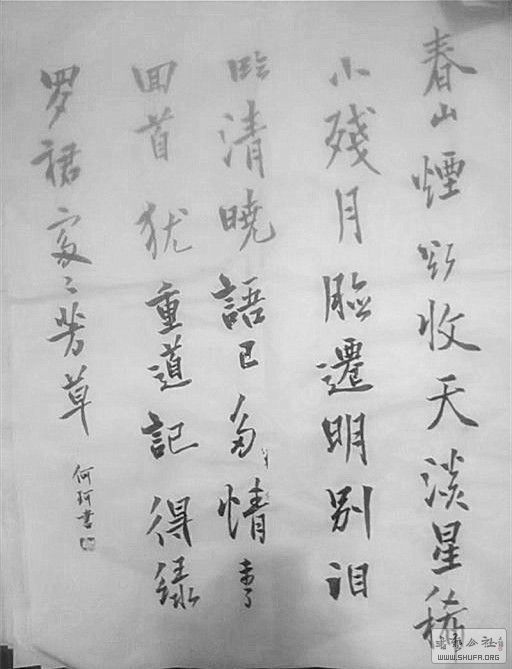 春山煙欲收天淡星稀
小殘月臉邊明别泪
臨清曉語已多情未了
回首犹重道記得綠
罗裙處々芳草
何珂書
公社
WWW.SHUFA.ORG